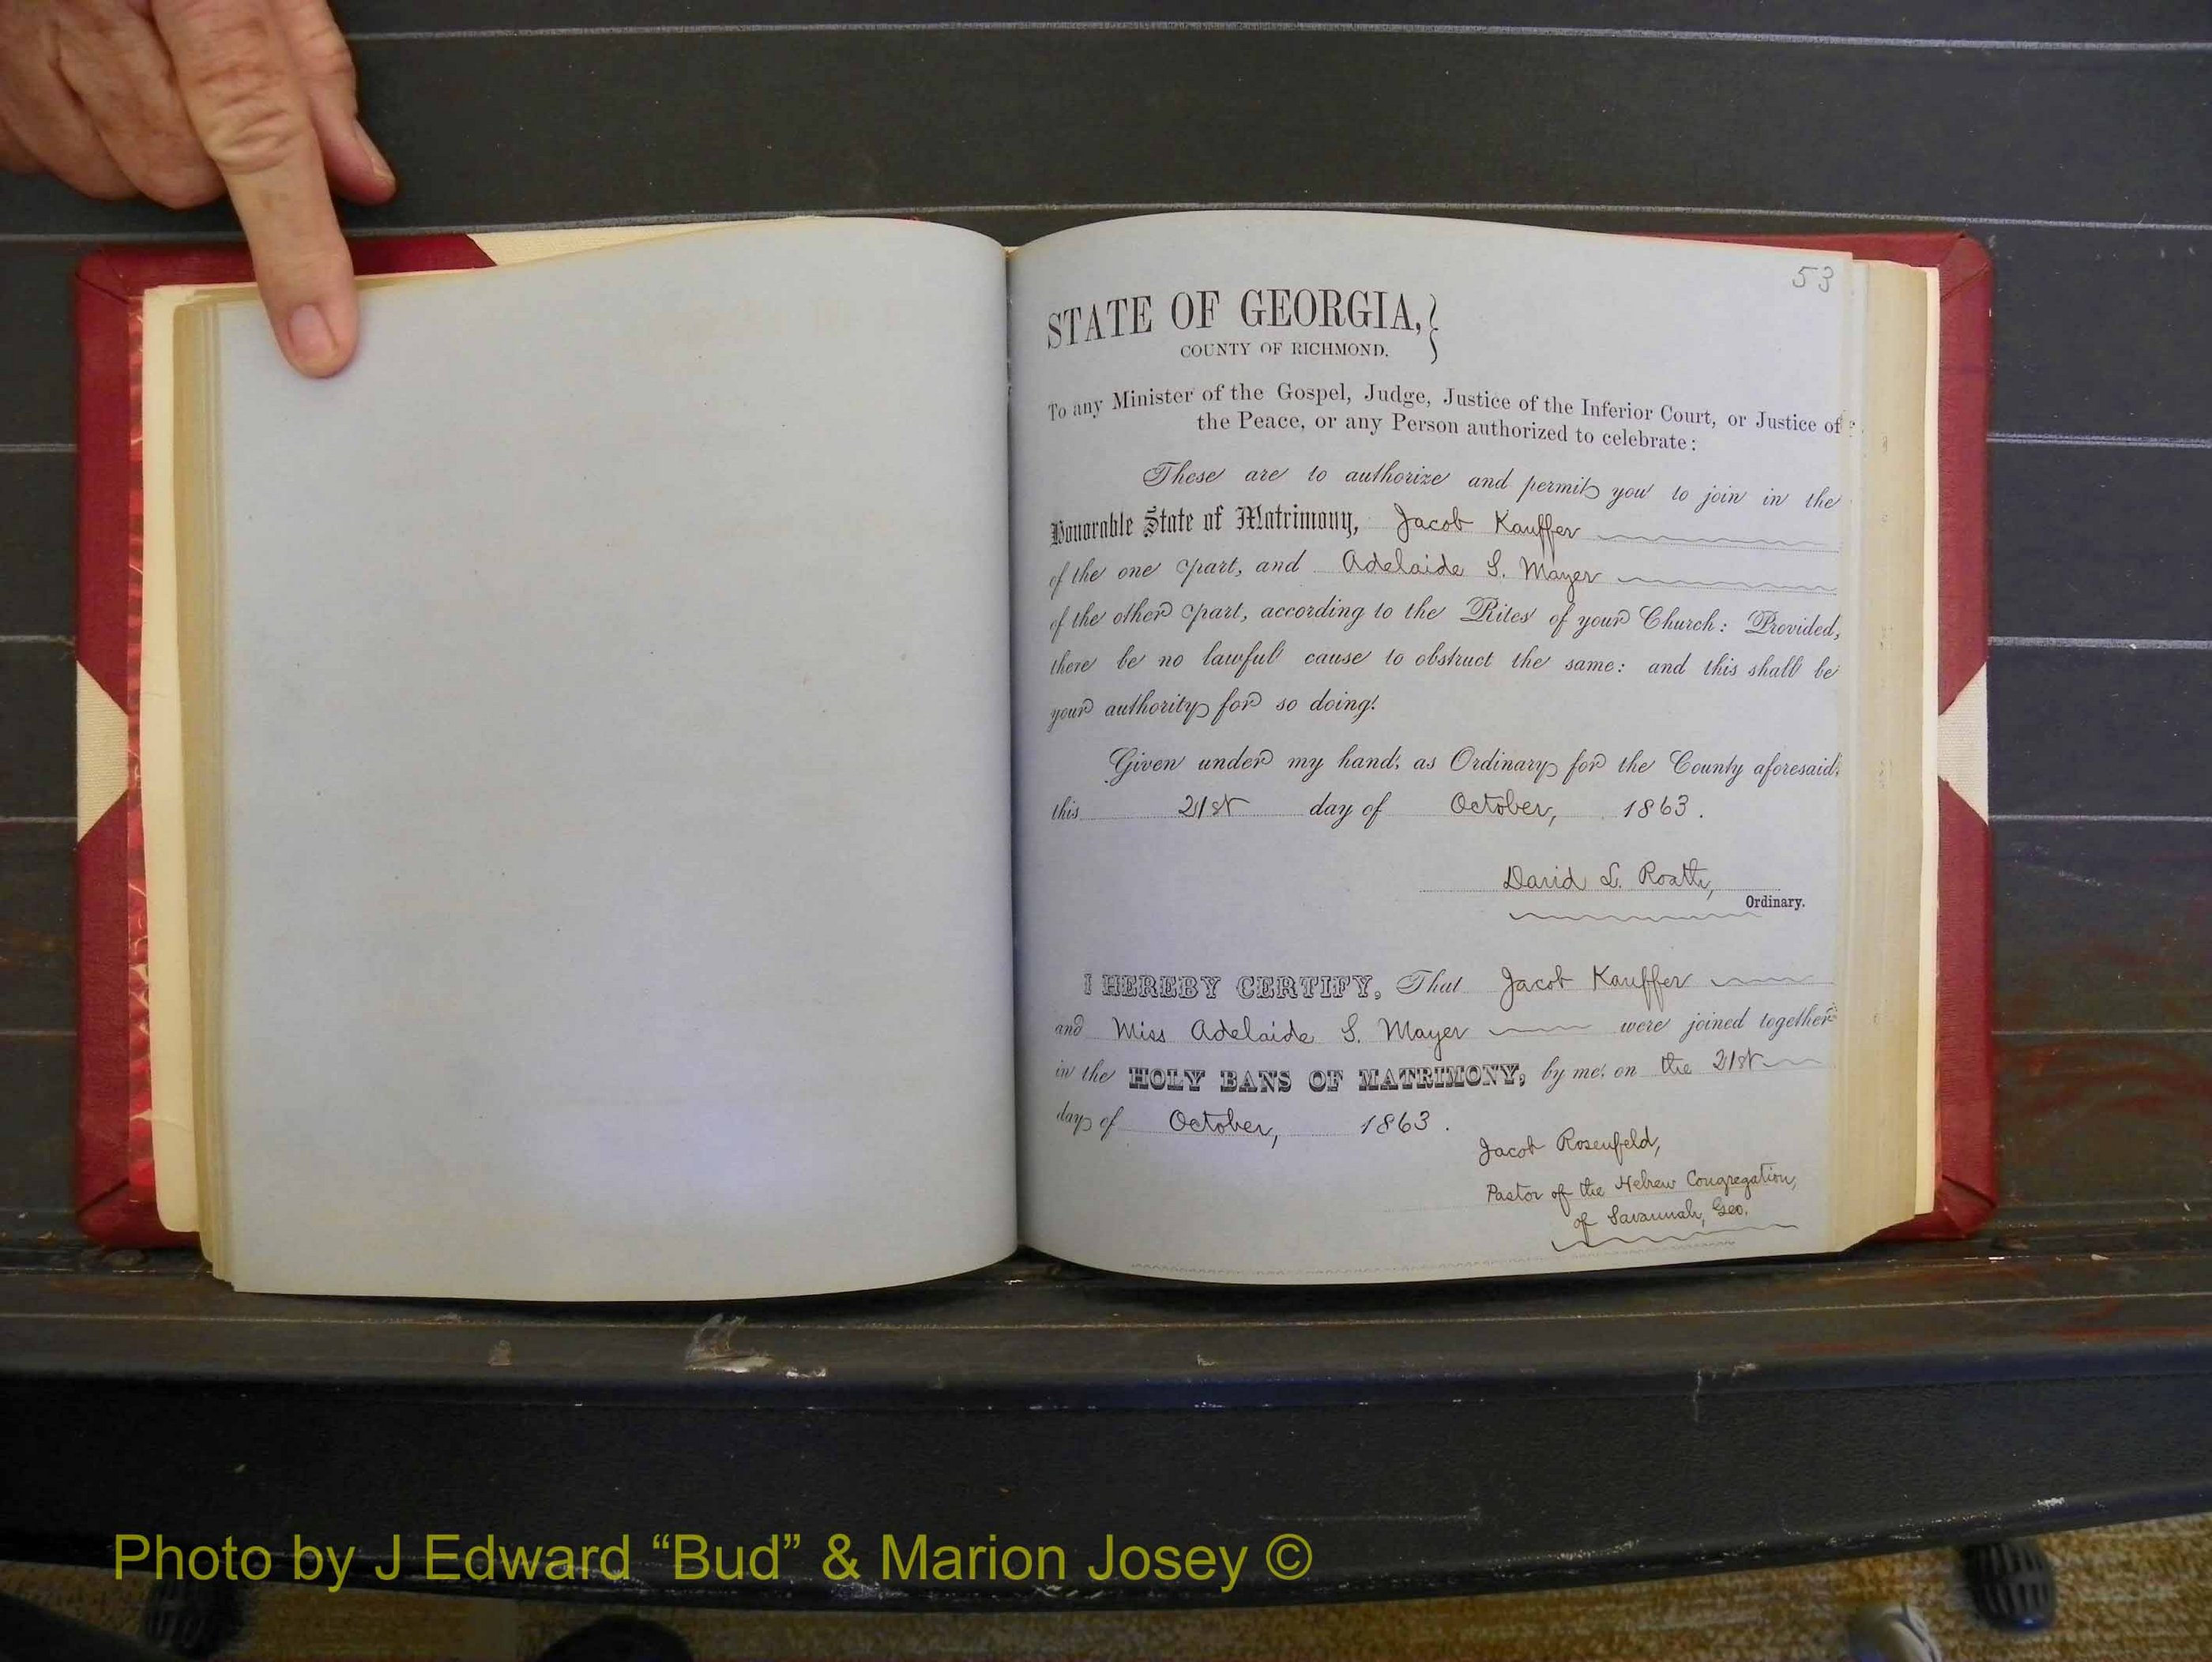 53
STATE OF GEORGIA,}
COUNTY OF RICHMOND.
To any Minister of the Gospel, Judge, Justice of the Inferior Court, or Justice of
the Peace, or any Person authorized to celebrate:
These are to authorize and permit you to join in the
Honorable State of Matrimony, Jacob Kauffer
of the one part, and Adelaide S. Mayer
of the other part, according to the Rites of your Church: Provided,
there be no lawful cause to obstruct the same: and this shall be
your authority for so doing.
Given under my hand, as Ordinary for the County aforesaid,
this 21st day of October, 1863.
David L. Roath,
Ordinary.
I HEREBY CERTIFY, That Jacob Kauffer
and Miss Adelaide S. Mayer were joined together
in the HOLY BANS OF MATRIMONY, by me, on the 21st
day of October, 1863.
Jacob Rosenfeld,
Pastor of the Hebrew Congregation,
of Savannah, Geo.
Photo by J Edward “Bud” & Marion Josey ©